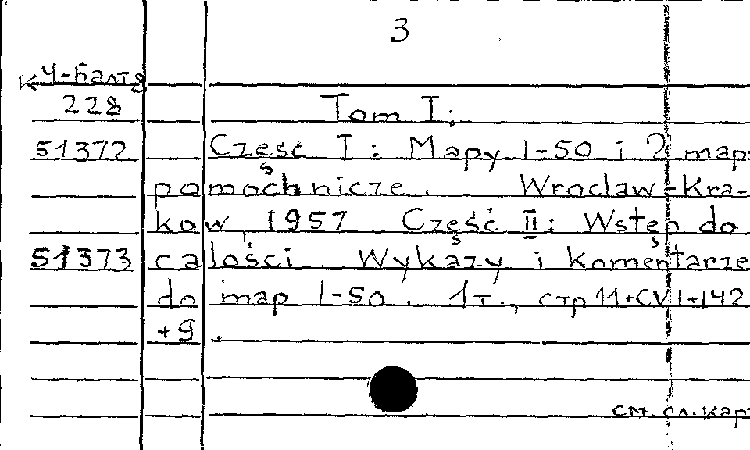 3
Ч-Балтя
228
Tom I:
51372 Część I: Mapy 1-50 i 2 map
pomochnicze. Wroclaw-Kra-
kow, 1957 Część II: Wstęp do
51373 całości Wykazy i komentarze
do map 1-50. 1т., стр 11+CVI+142
+9.
см. сл. кар